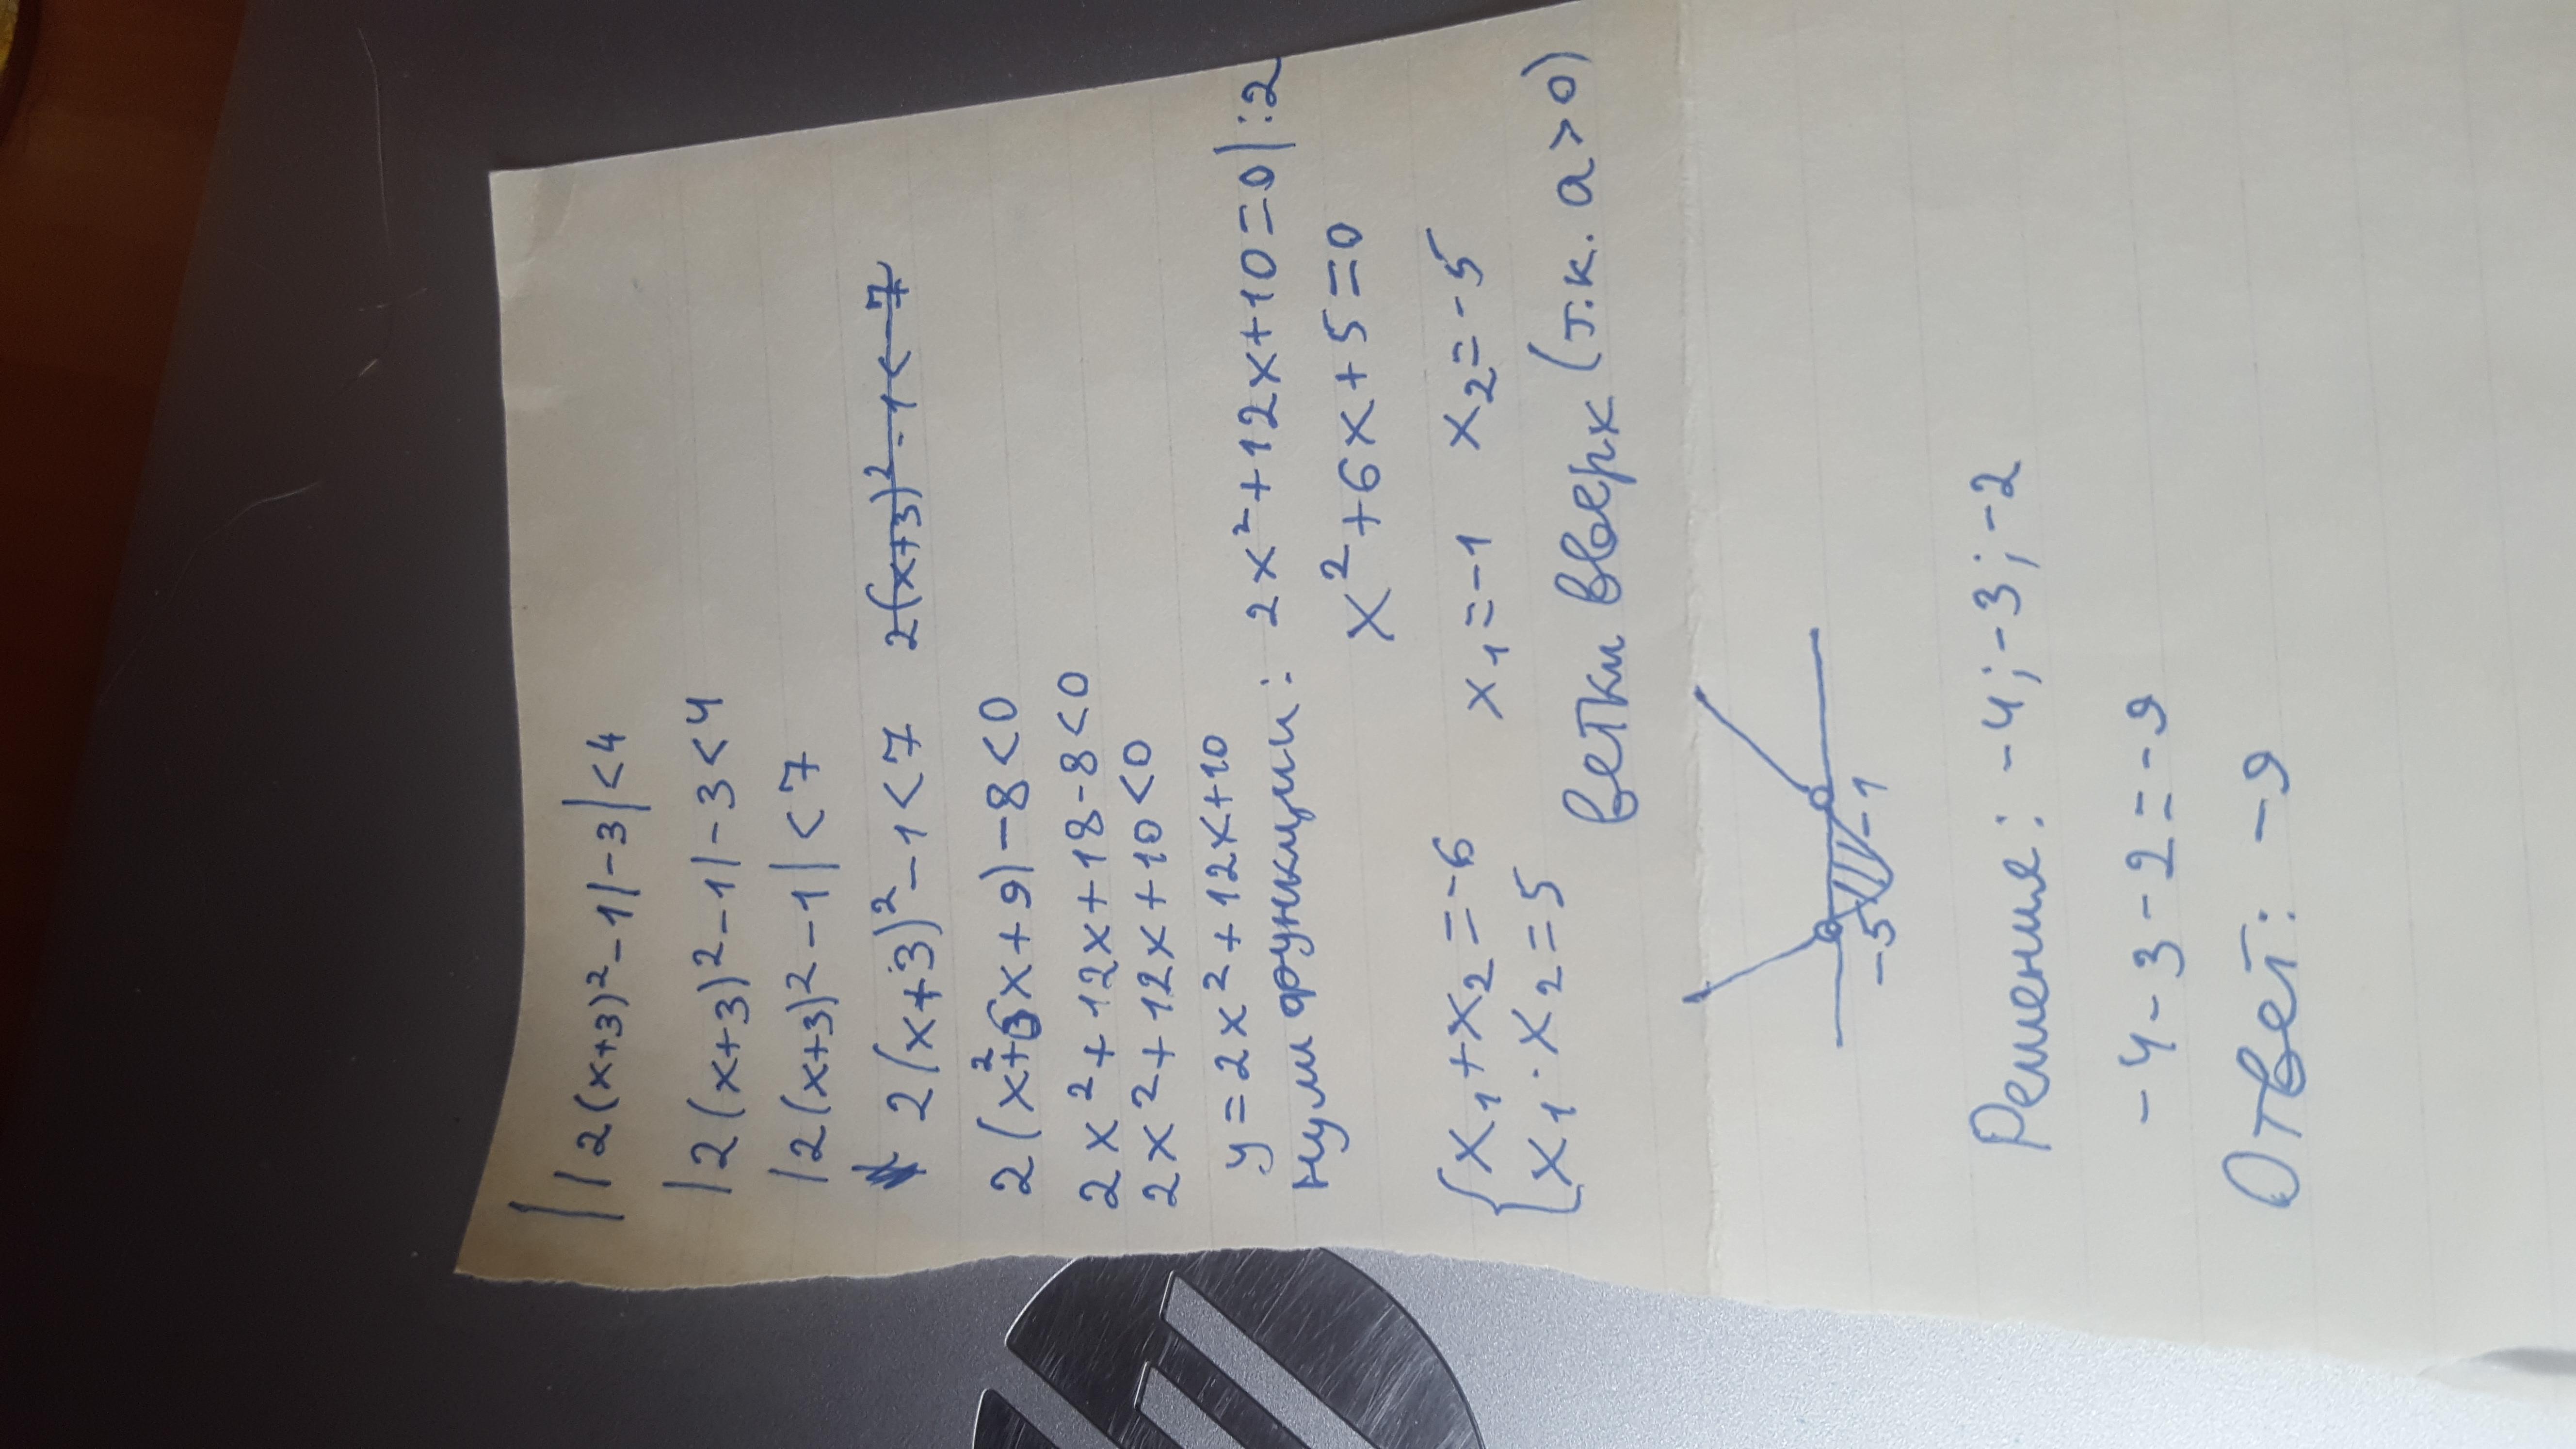 ||2(x+3)²-1|-3|<4
|2(x+3)²-1|-3<4
|2(x+3)²-1|<7
2(x+3)²-1<7 2(x+3)²-1<7
2(x²+6x+9)-8<0
2x²+12x+18-8<0
2x²+12x+10<0
y=2x²+12x+10
нули функции: 2x²+12x+10=0|:2
x²+6x+5=0
{x₁+x₂=-6
x₁·x₂=5 x₁=-1 x₂=-5
ветки вверх (т.к. a>0)
-5 -1
Решения: -4; -3; -2
-4-3-2=-9
Ответ: -9